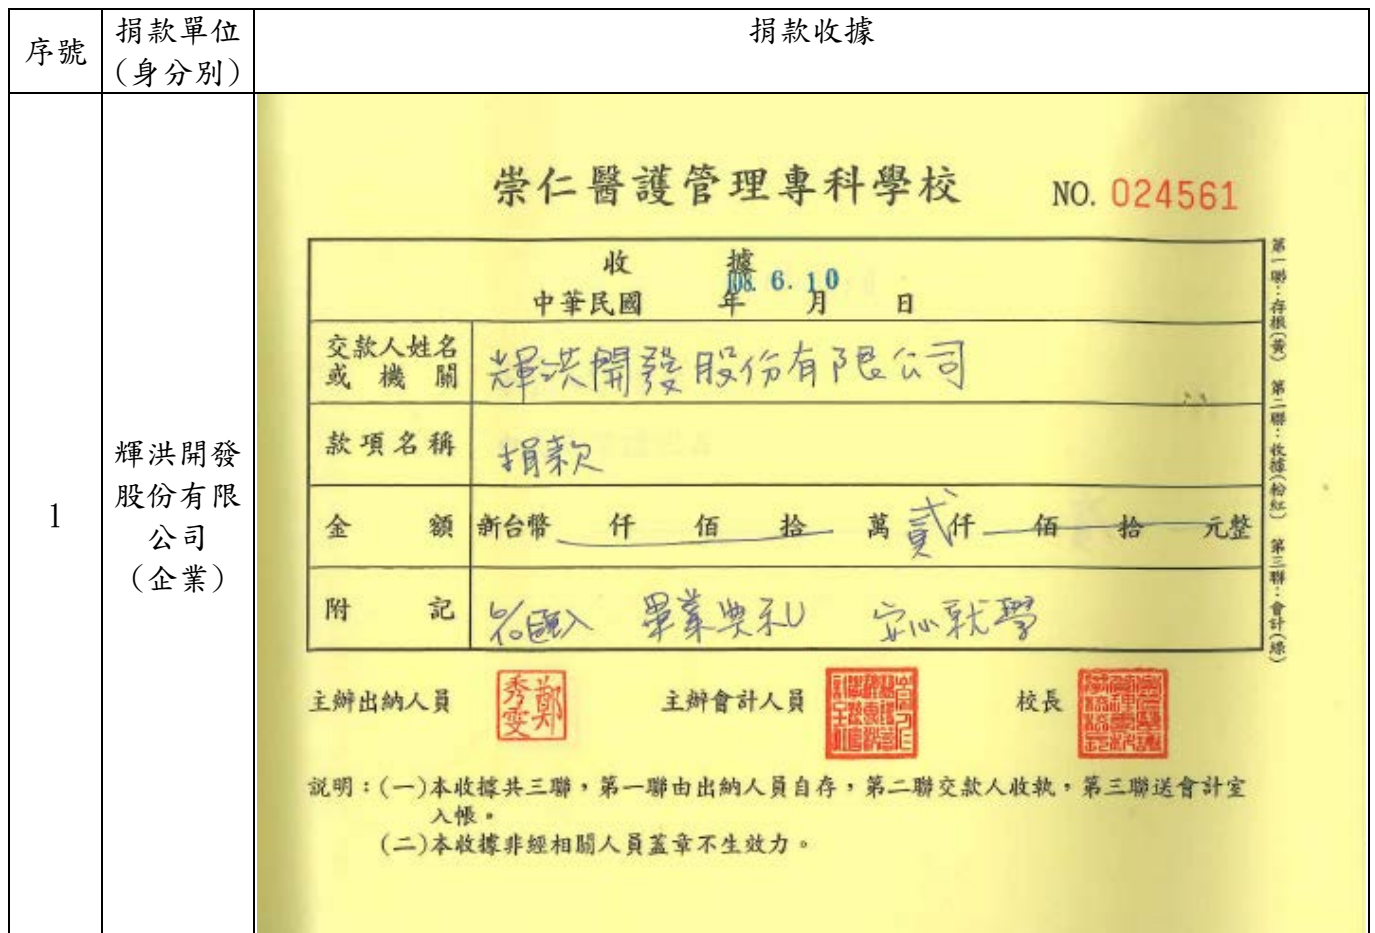 序號
捐款單位
(身分別)
捐款收據
1
輝洪開發
股份有限
公司
(企業)
崇仁醫護管理專科學校 NO. 024561
收 據
108. 6. 10
中華民國 年 月 日
交款人姓名
或機關
輝洪開發股份有限公司
款項名稱 捐款
金額 新台幣 仟 佰 拾 萬 貳仟 佰 拾 元整
附記 匯入 畢業典礼 安心就學
第一聯:存根(黃) 第二聯:收據(粉紅) 第三聯:會計(綠)
主辦出納人員 鄭秀雯 主辦會計人員 校長
説明:(一)本收據共三聯,第一聯由出納人員自存,第二聯交款人收執,第三聯送會計室
入帳。
(二)本收據非經相關人員蓋章不生效力。